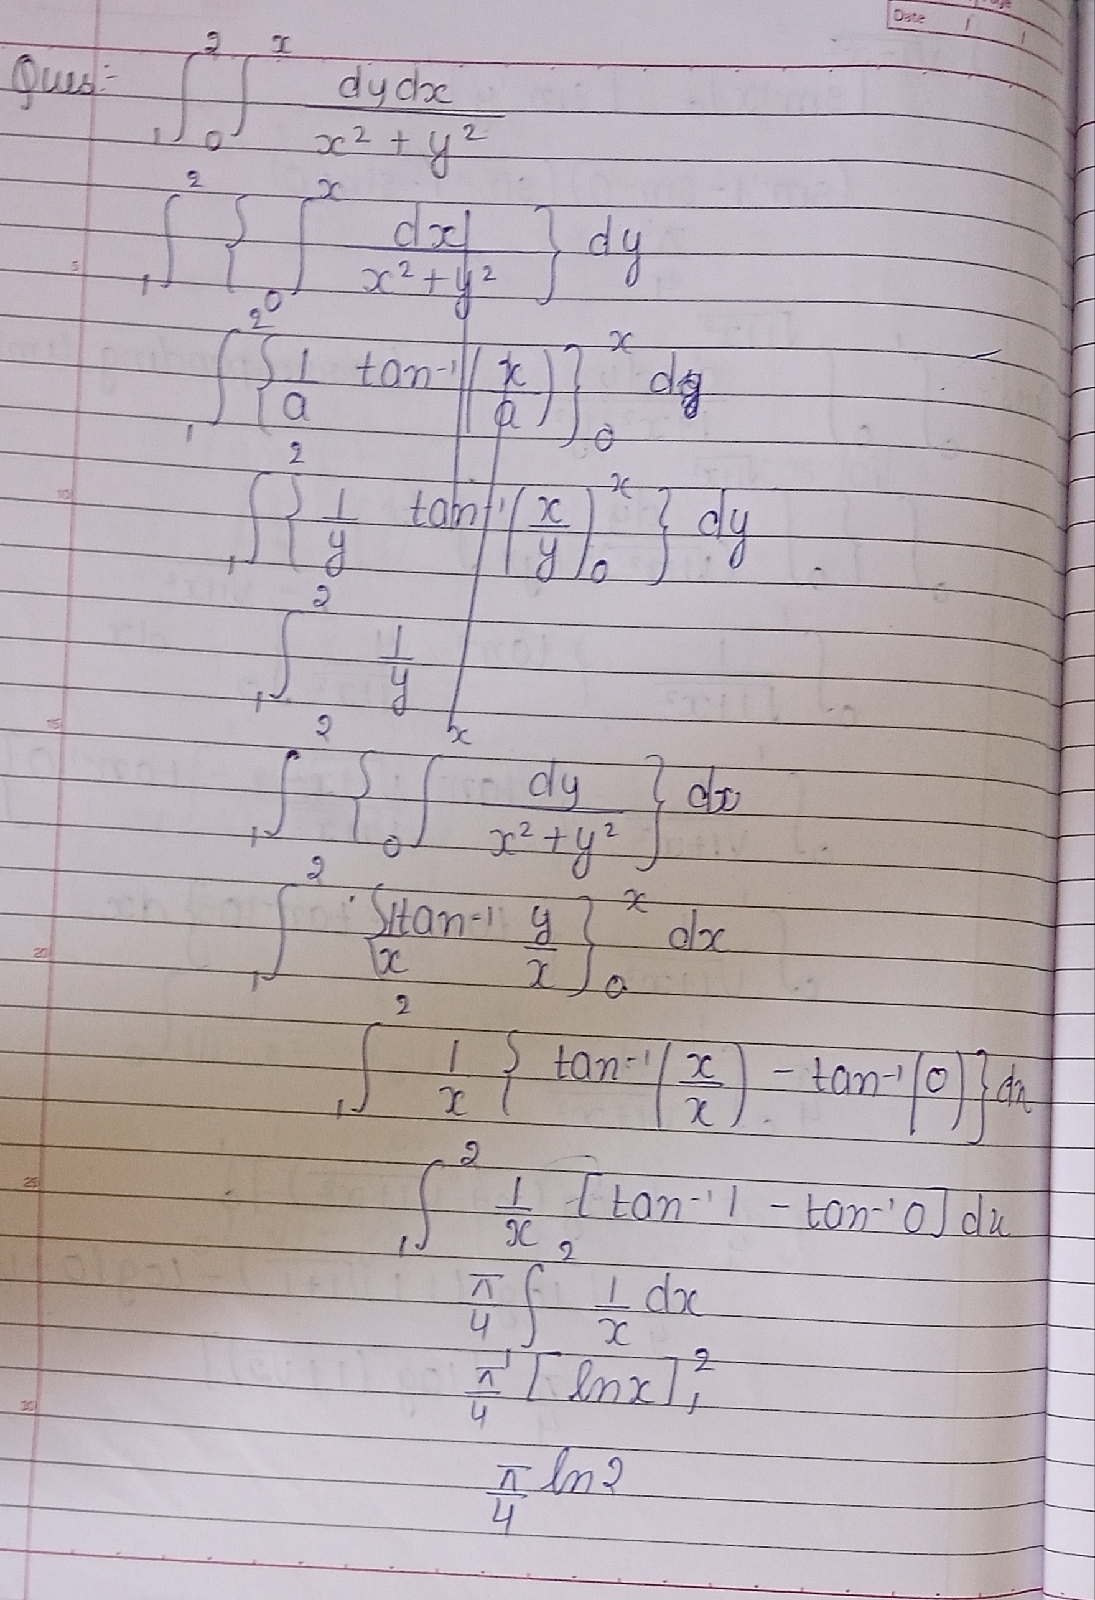 Date / /
Ques:- ∫₁² ∫₀ˣ dydx / (x² + y²)
∫₁² { ∫₀ˣ dx / (x² + y²) } dy
∫₁² { 1/a tan⁻¹ (x/a) }₀ˣ dy
∫₁² { 1/y tan⁻¹ (x/y)₀ˣ } dy
∫₁² 1/y
∫₁² { ∫₀ˣ dy / (x² + y²) } dx
∫₁² { 1/x tan⁻¹ y/x }₀ˣ dx
∫₁² 1/x { tan⁻¹ (x/x) - tan⁻¹ (0) } dx
∫₁² 1/x [tan⁻¹ 1 - tan⁻¹ 0] dx
π/4 ∫₁² 1/x dx
π/4 [ln x]₁²
π/4 ln 2